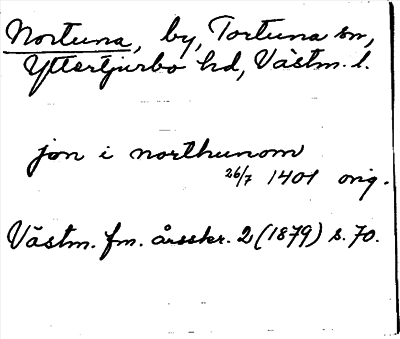 Nortuna, by, Tortuna sn,
Yttertjurbo hd, Västm. l.
jon i northunom
26/7 1401 orig.
Västm. fm. årsskr. 2 (1879) s. 70.